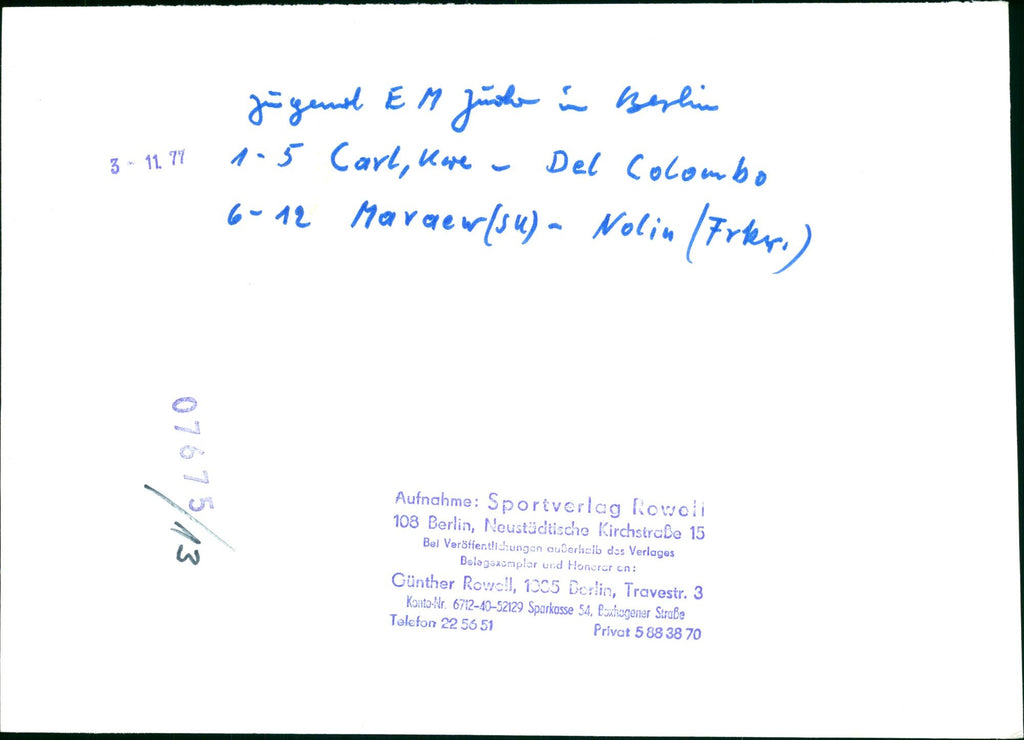 Jugend EM Judo in Berlin
3 - 11. 77
1-5 Carl, Uwe - Del Colombo
6-12 Maraew (SU) - Nolin (Frkr.)
07675/13
Aufnahme: Sportverlag Rowell
108 Berlin, Neustädtische Kirchstraße 15
Bei Veröffentlichungen außerhalb des Verlages
Belegexemplar und Honorar an:
Günther Rowell, 1035 Berlin, Travestr. 3
Konto-Nr. 6712-40-52129 Sparkasse 54, Boxhagener Straße
Telefon 22 56 51 Privat 5 88 38 70